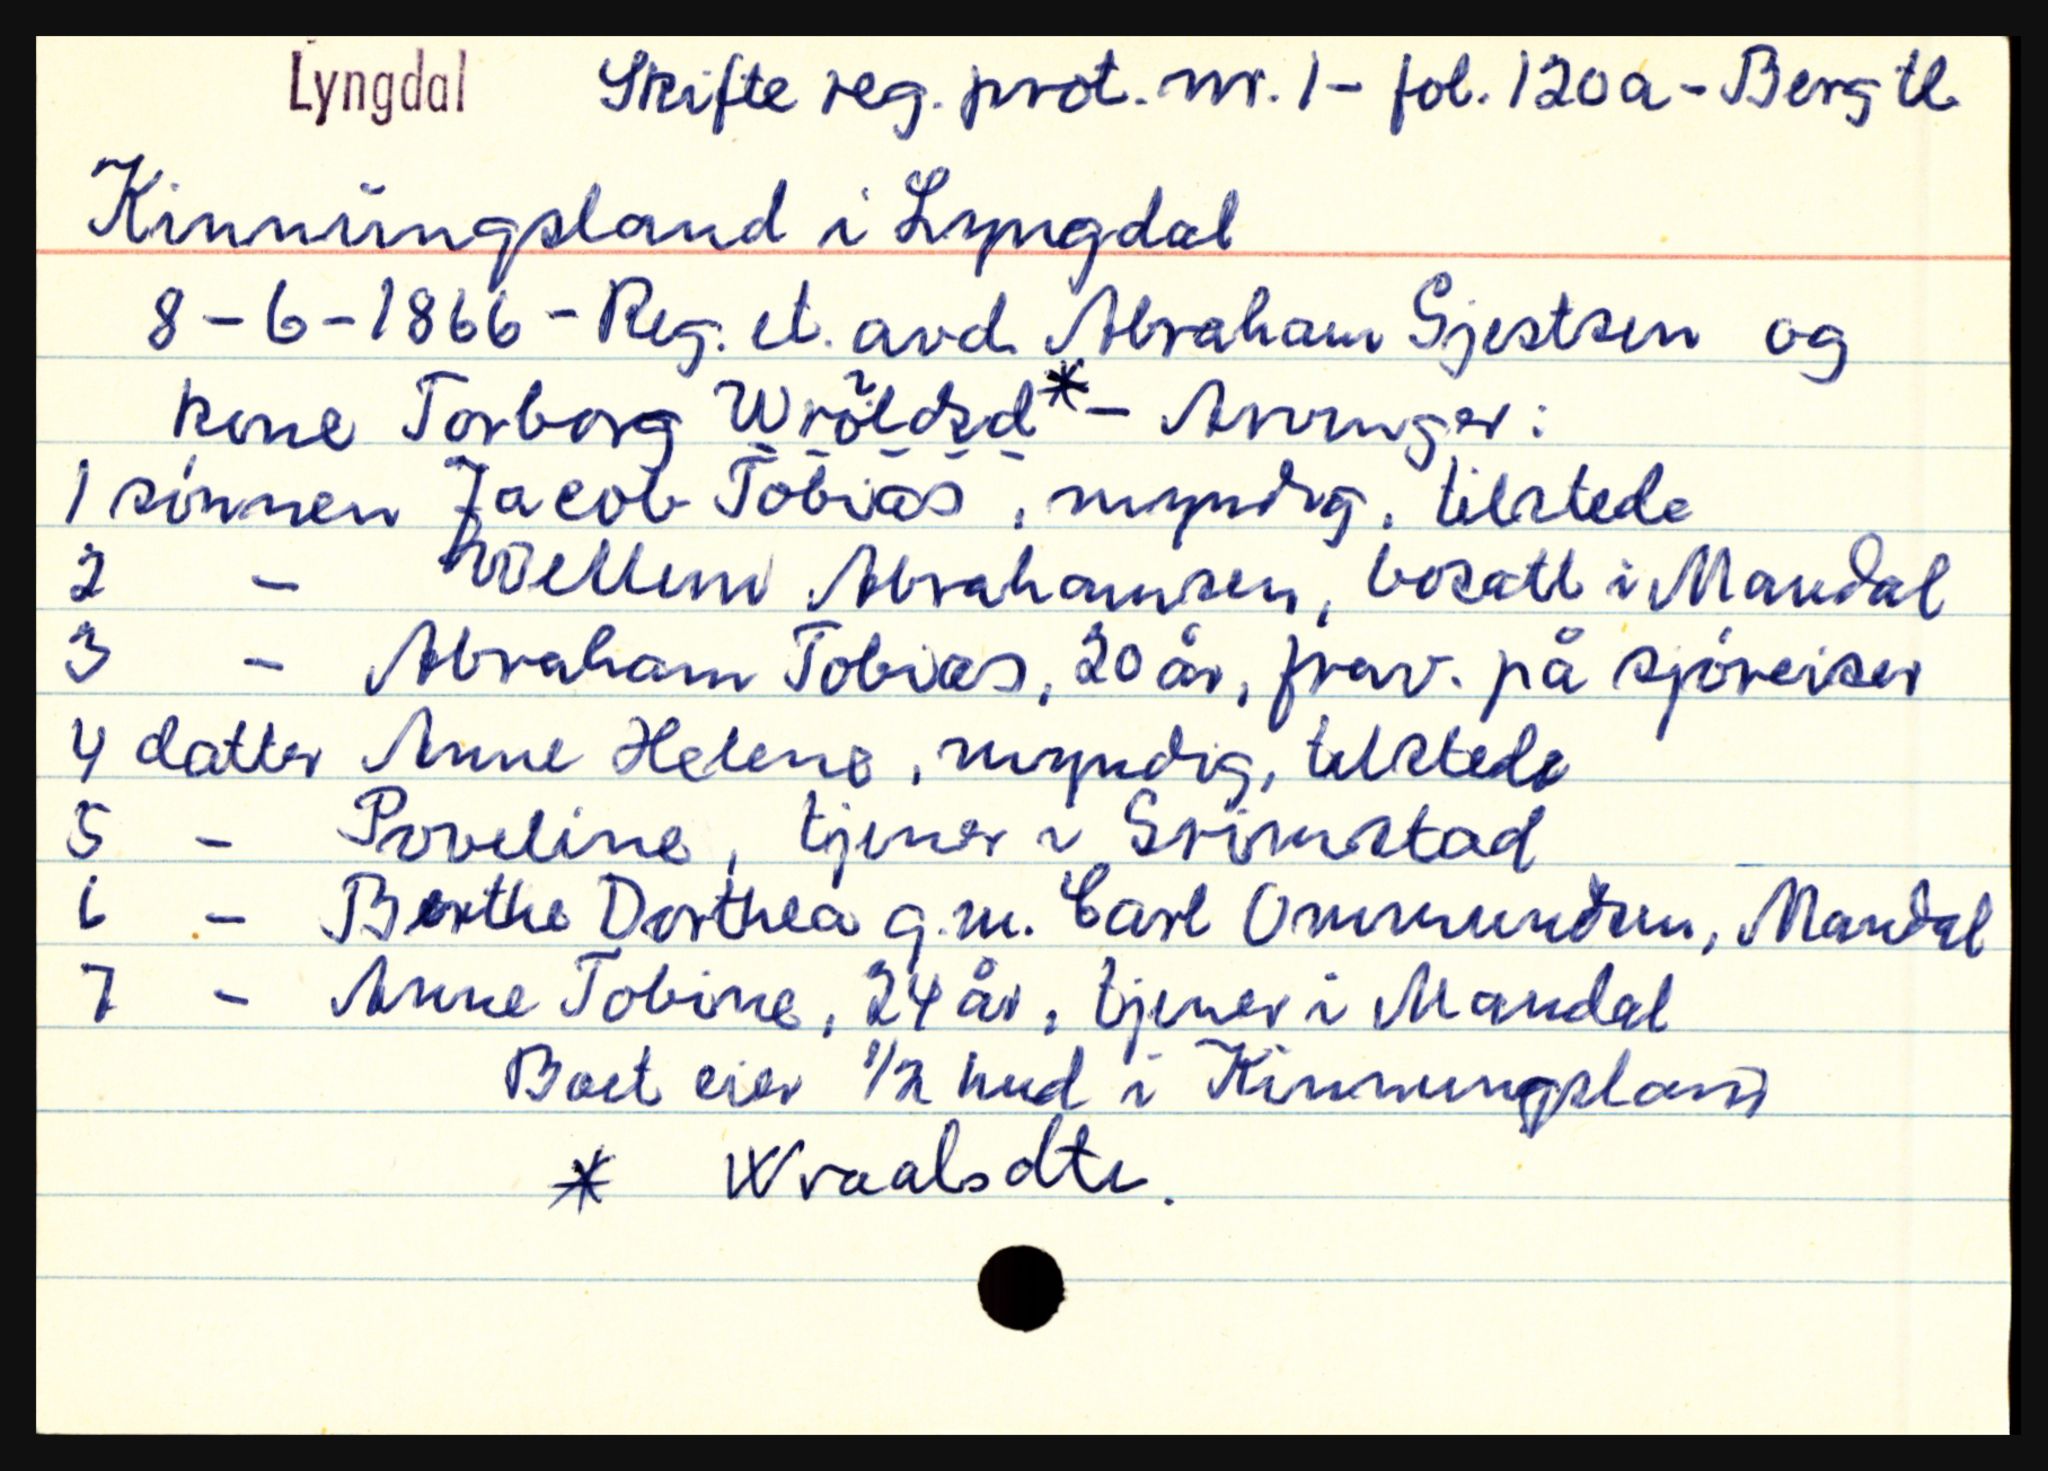 Lyngdal Skifte reg. prot. nr. 1 - fol. 120a - Berg tl
Kinnungsland i Lyngdal
8-6-1866 - Reg. et. avd. Abraham Gjestsen og
kone Torborg Wröldsd* - Arvinger:
1 sønnen Jacob Tobias, myndig, tilstede
2 - Wellem Abrahamsen, bosatt i Mandal
3 - Abraham Tobias, 20 år, frav. på sjøreiser
4 datter Anne Helene, myndig, tilstede
5 - Poveline, tjener i Grimstad
6 - Berthe Dorthea g.m. Carl Ommundsen, Mandal
7 - Anne Tobine, 24 år, tjener i Mandal
Boet eier 1/2 hud i Kinnungsland
* Wraalsdtr.